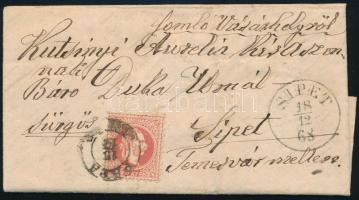 Somló Vásárhelyről
Kutsinyi Aurelia Kisasszon-
nak
Báro Duka Uknál
sürgős
Sipet
Temesvár mellett
SIPET
18
12
68